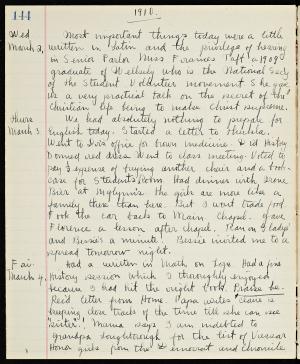 144
1910.
Wed March 2, Most important things today were a little
written in Latin and the privilege of hearing
in Senior Parlor Miss Frances Taft ex-1909
graduate of Wellesley who is the National Secy
of the Student Volunteer movement. She gave
us a very practical talk on the secret of the
Christian life being to make Christ supreme.
Thurs March 3 We had absolutely nothing to prepare for
English today. Started a letter to Thelsla.
Went to office for brown medicine & did History
Donned red dress. Went to class meeting. Voted to
pay expense of buying another chair and a book-
case for Students Room. Had dinner with Irene
Bier at McGlynn's. The girls are more like a
family there than here. But I won't trade food
Took the car back to Main. Chapel. Gave
Florence a lesson after chapel. Ran on Gladys'
and Bessie's a minute. Bessie invited me to a
spread tomorrow night.
Fri. March 4, Had a written in Math on Logs. Had a fine
History session which I thoroughly enjoyed
because I had hit the right book. Praise be.
Rec'd letter from Home. Papa writes is
keeping close tracks of the time till she can see
"sister". Mama says I am indebted to
Grandpa for the list of Vassar
Honor girls from the &